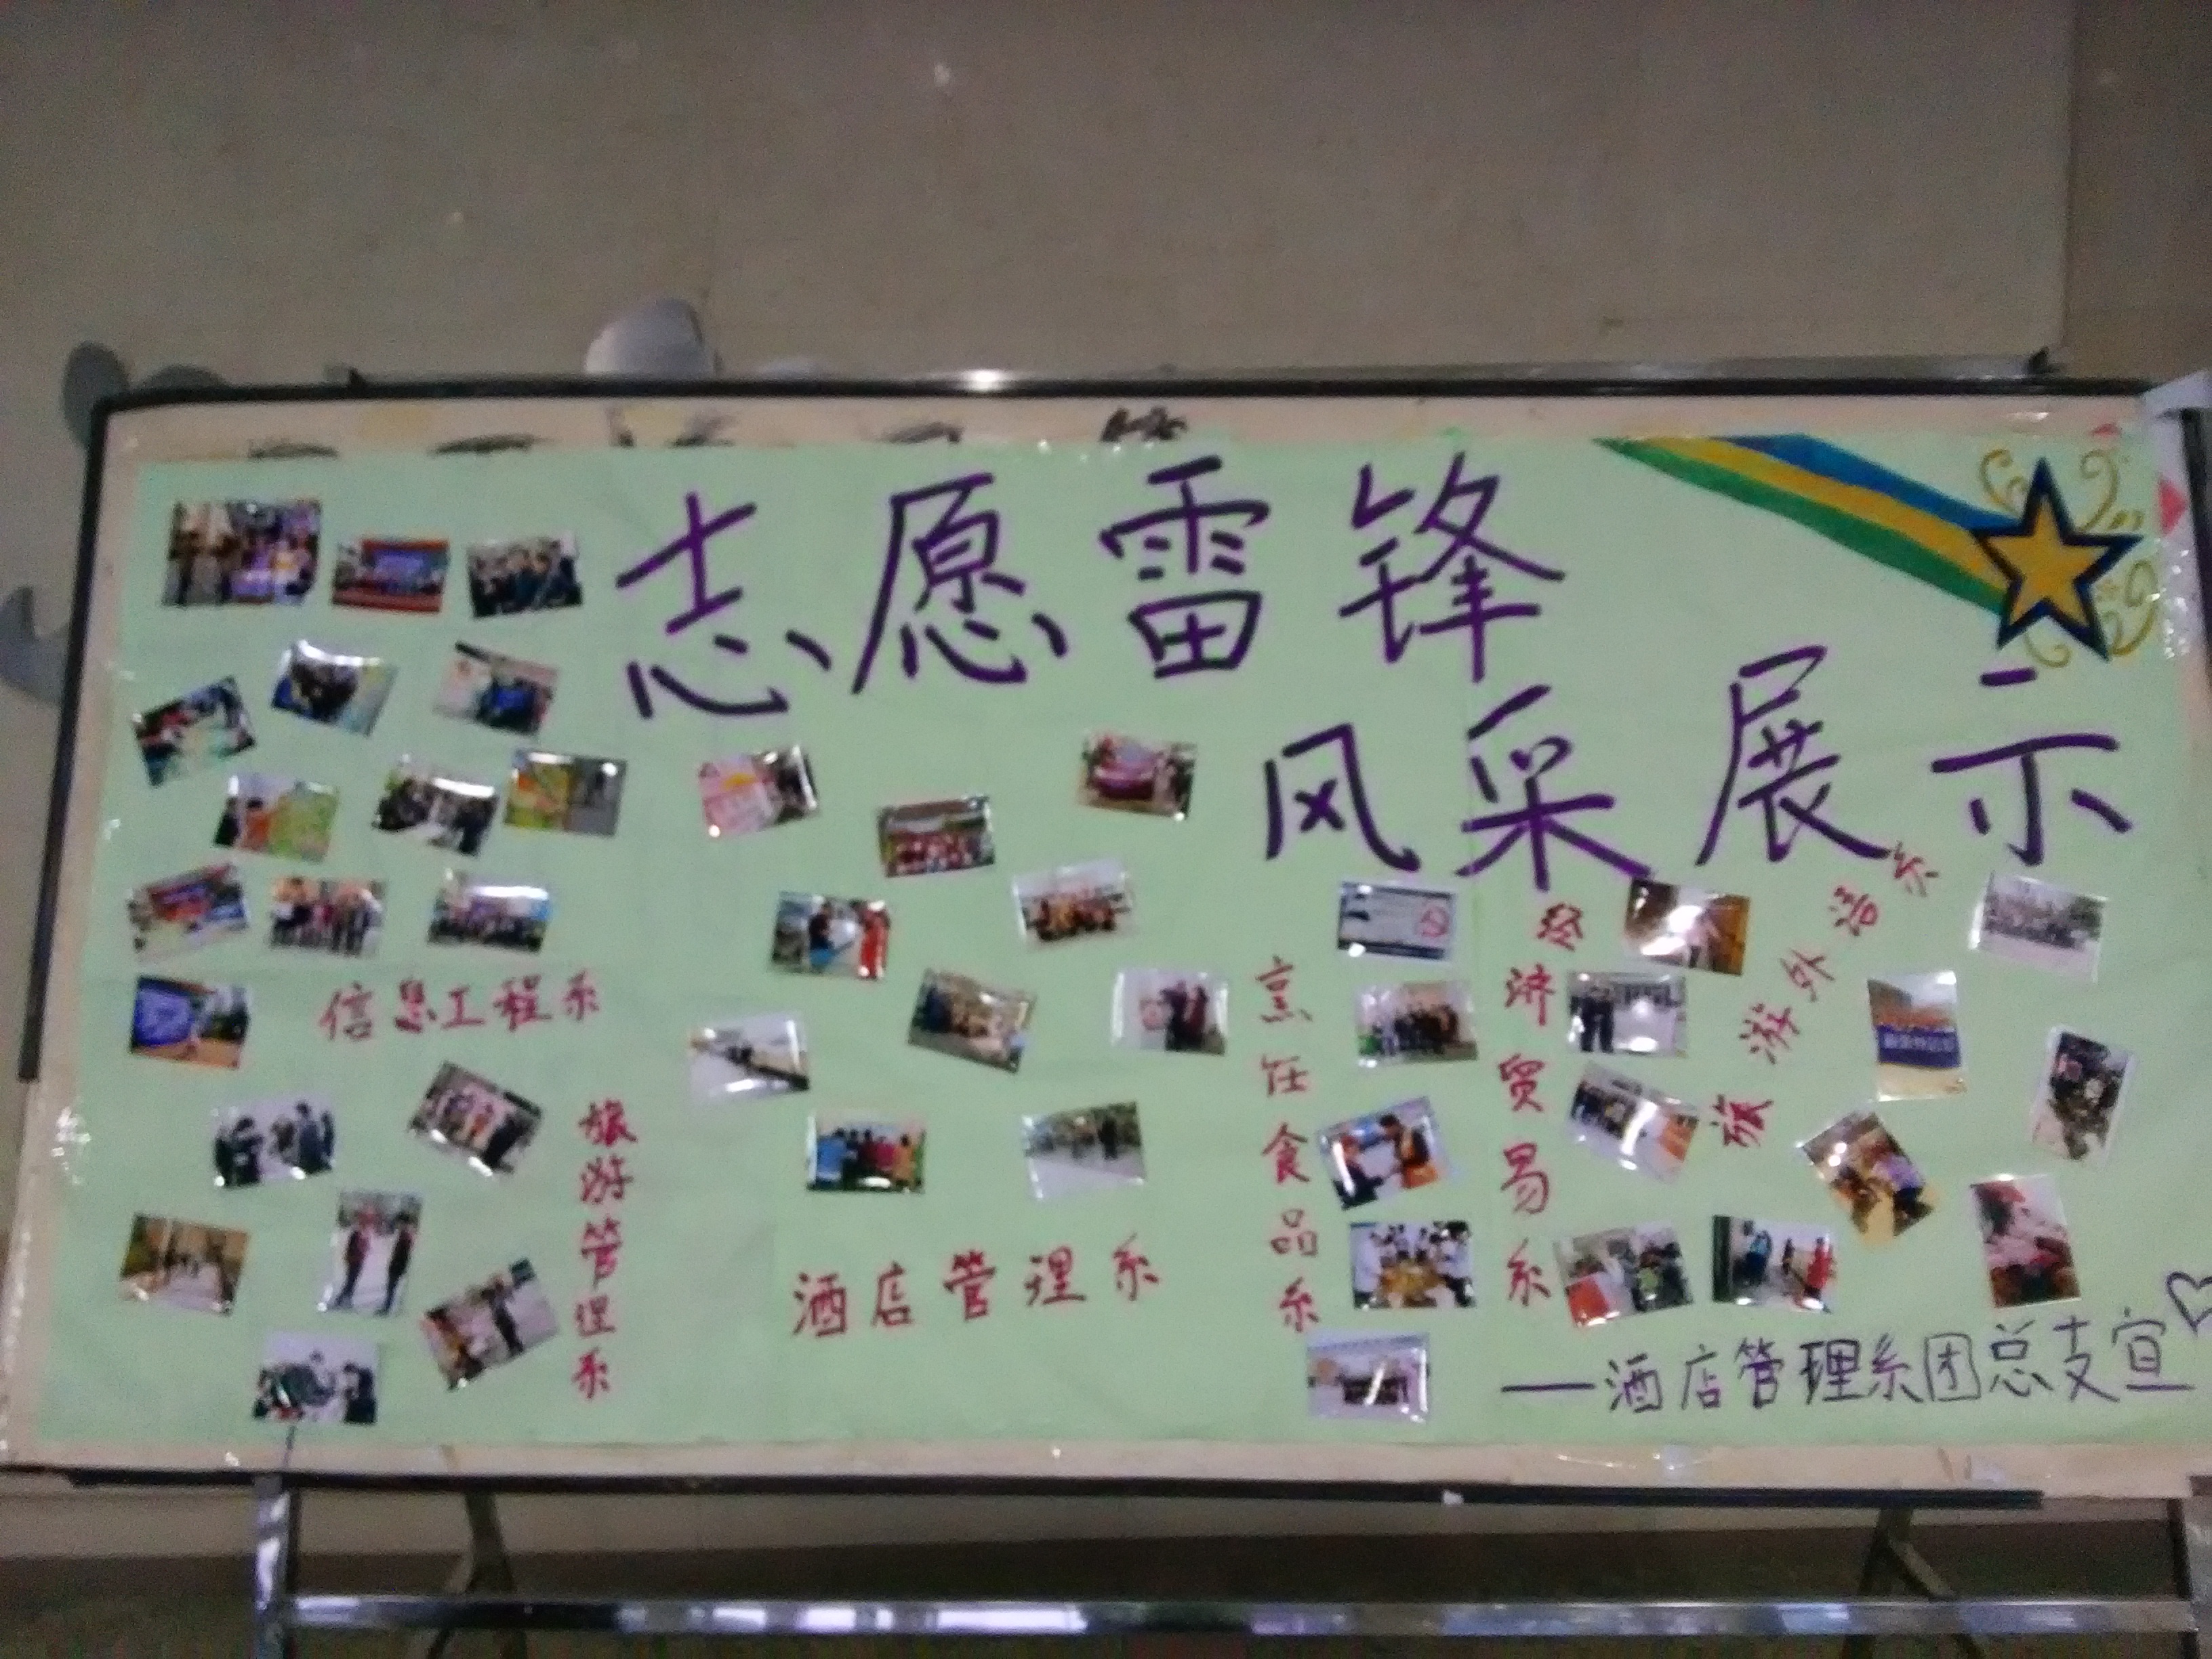 志愿雷锋
风采展示
信息工程系
旅游管理系
酒店管理系
烹饪食品系
经济贸易系
旅游外语系
—酒店管理系团总支宣